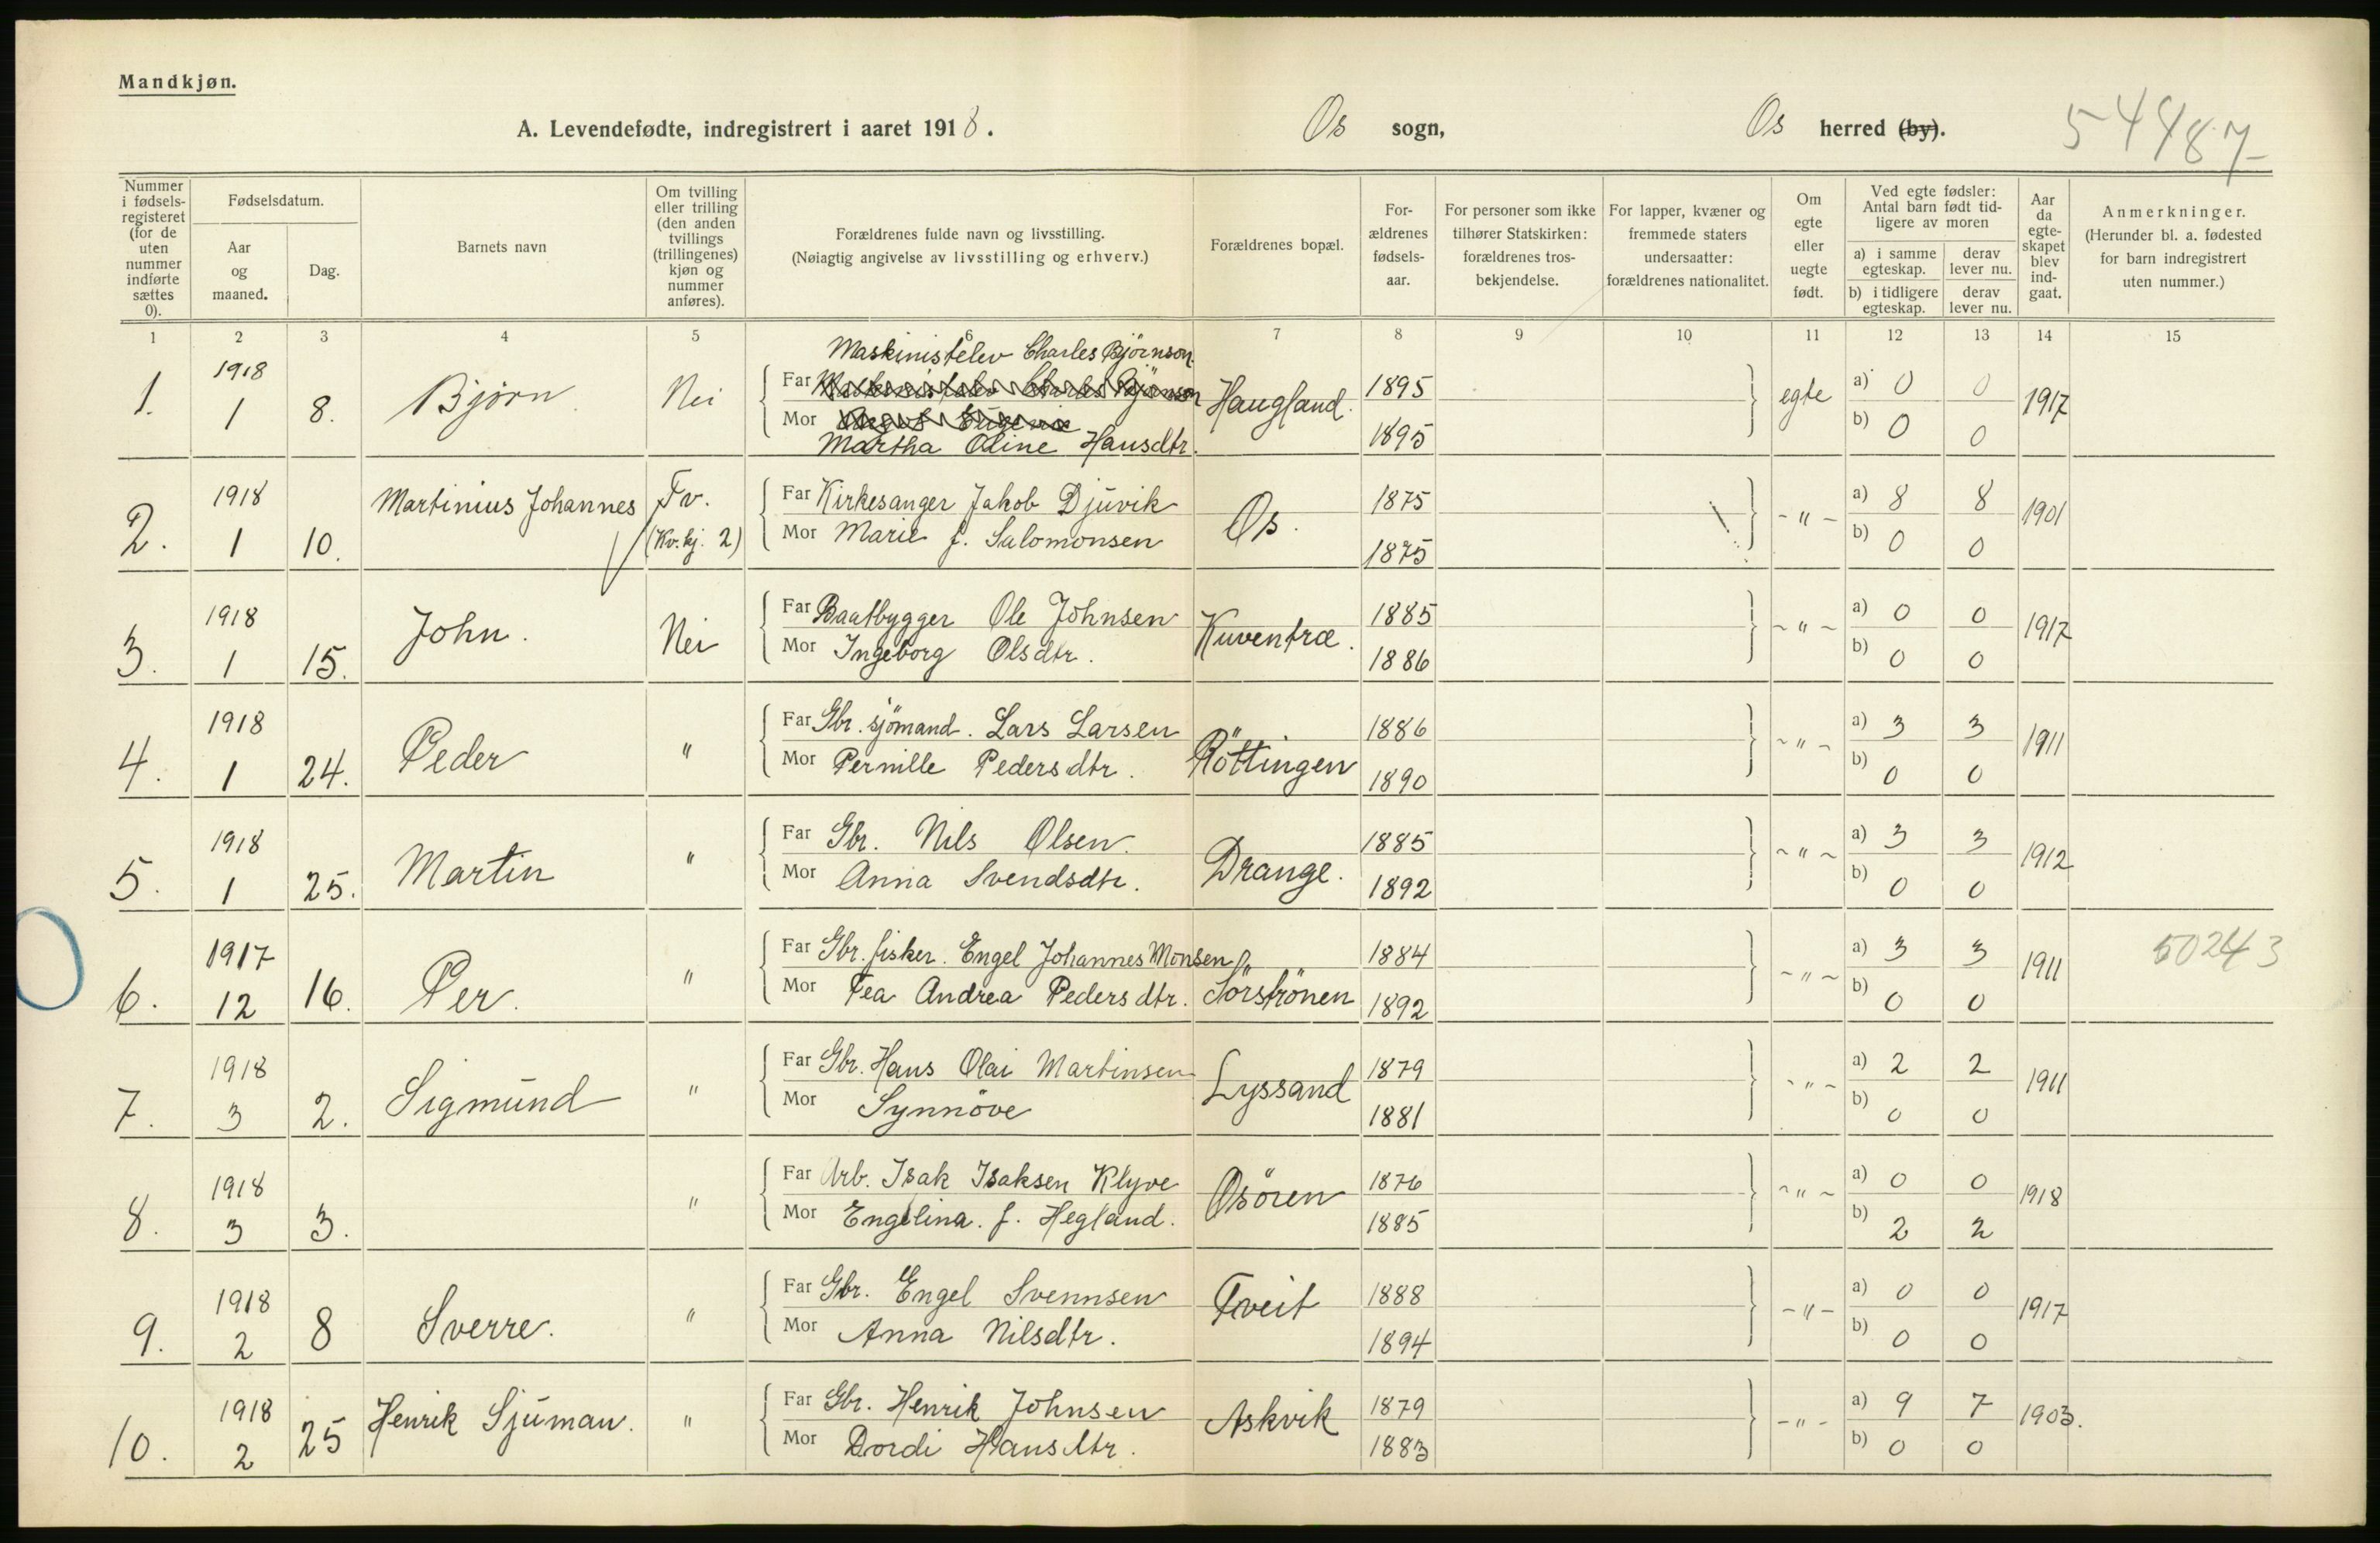 Mandkjøn.
A. Levendefødte, indregistrert i aaret 1918. Os sogn, Os herred (by). 54487
Nummer i fødsels-registeret (for de uten nummer indførte sættes 0).
Fødselsdatum.
Aar og maaned.
Dag.
Barnets navn
Om tvilling eller trilling (den anden tvillings (trillingenes) kjøn og nummer anføres).
Forældrenes fulde navn og livsstilling.
(Nøiagtig angivelse av livsstilling og erhverv.)
Forældrenes bopæl.
For-ældrenes fødsels-aar.
For personer som ikke tilhører Statskirken: forældrenes tros-bekjendelse.
For lapper, kvæner og fremmede staters undersaatter: forældrenes nationalitet.
Om egte eller uegte født.
Ved egte fødsler: Antal barn født tid-ligere av moren
a) i samme egteskap. derav lever nu.
b) i tidligere egteskap. derav lever nu.
Aar da egte-skapet blev ind-gaat.
Anmerkninger.
(Herunder bl. a. fødested for barn indregistrert uten nummer.)
1 2 3 4 5 6 7 8 9 10 11 12 13 14 15
Maskinistelev Charles Björnson.
1. 1918 1 8. Bjørn. Nei Far Maskinistelev Charles Björnson Haugland. 1895 egte a) 0 0 1917
Mor 1895 b) 0 0
Martha Oline Hansdtr.
2. 1918 1 10. Martinius Johannes Tv. (Kv.kj. 2) Far Kirkesanger Jakob Djuvik Os. 1875 -"- a) 8 8 1901
Mor Marie f. Salomonsen 1875 b) 0 0
3. 1918 1 15. John. Nei Far Baatbygger Ole Johnsen Kuventræ. 1885 -"- a) 0 0 1917
Mor Ingeborg Olsdtr. 1886 b) 0 0
4. 1918 1 24. Peder " Far Gbr. sjömand. Lars Larsen Röttingen 1886 -"- a) 3 3 1911
Mor Pernille Pedersdtr. 1890 b) 0 0
5. 1918 1 25. Martin " Far Gbr. Nils Olsen. Drange. 1885 -"- a) 3 3 1912
Mor Anna Svendsdtr. 1892 b) 0 0
6. 1917 12 16. Per. " Far Gbr. fisker. Engel Johannes Monsen Sörströnen 1884 -"- a) 3 3 1911 50243
Mor Tea Andrea Pedersdtr. 1892 b) 0 0
7. 1918 3 2. Sigmund " Far Gbr. Hans Olai Martinsen Lyssand 1879 -"- a) 2 2 1911
Mor Synnöve 1881 b) 0 0
8. 1918 3 3. " Far Arb. Isak Isaksen Klyve Osören 1876 -"- a) 0 0 1918
Mor Engelina. f. Hegland. 1885 b) 2 2
9. 1918 2 8 Sverre. " Far Gbr. Engel Svennsen Tveit 1888 -"- a) 0 0 1917
Mor Anna Nilsdtr. 1894 b) 0 0
10. 1918 2 25 Henrik Sjuman. " Far Gbr. Henrik Johnsen Askvik 1879 -"- a) 9 7 1903.
Mor Dordi Hansdtr. 1883 b) 0 0